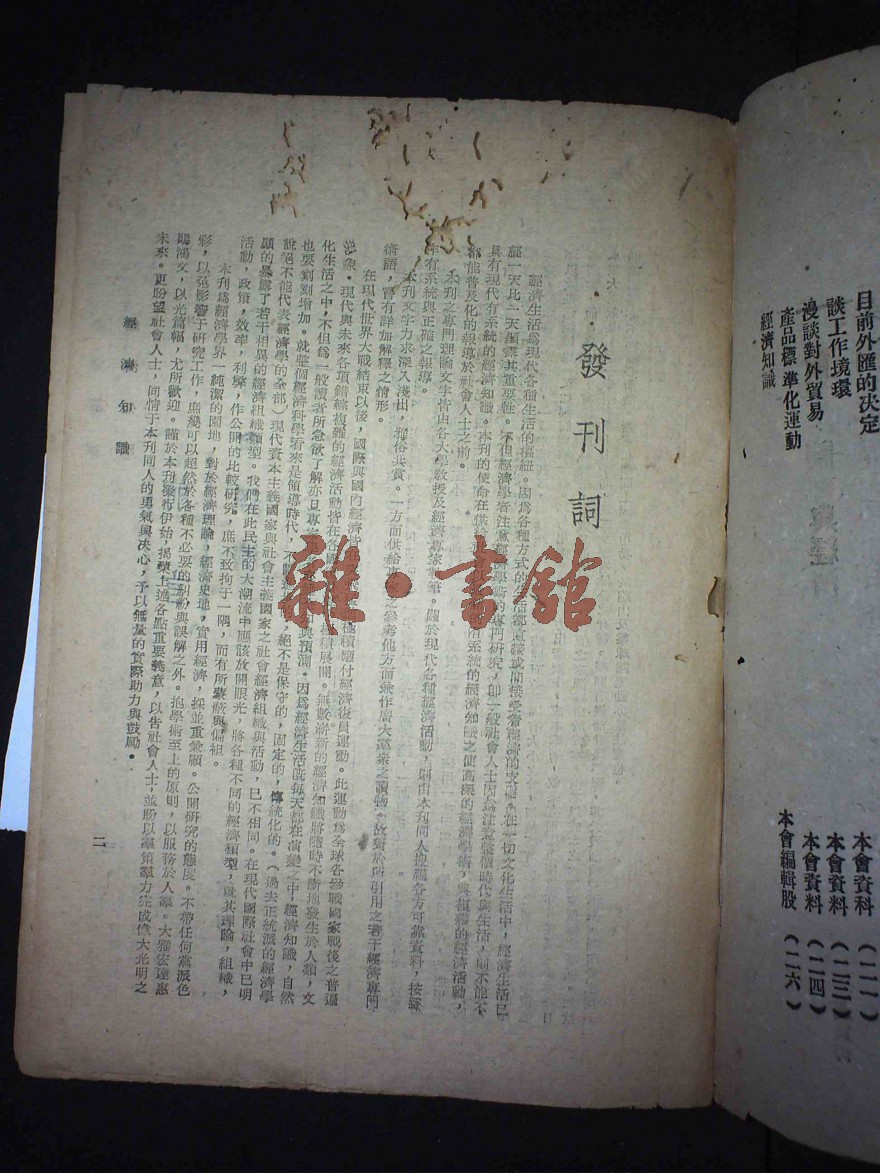 目前外匯的决定
談工作境環
漫談對外貿易
產品標準化運動
經濟知識
本會資科
本會資料
本會資料
本會編輯股
(二一)
(二三)
(二四)
(二六)
發刊詞
經濟生活為現代各種生活的樞紐。因為各種方式的生活都直接或間接受着經濟的支配。在一切文化生活中，經濟生活已
經一天比一天顯露其重要性。不但經濟學者注意經濟學術的專門研究，卽一般社會人士因為注意整個時代與生活，則不能不
具有現代有系統的經濟知識。本刊的使命在供給
系統的經濟知識之使高深的經濟學術，與複雜的經濟活動，
都能普及化的報導於社會人士之前。
本刊之專門理論文字皆由各大學教授及經濟專家執筆。關於現代各種經濟活動，則由本刊同人搜羅各方可靠資料，按號
作有系統與正確之報導。
本刊文字力求深入淺出，雅俗共賞。一方面供給專家之參考他方面兼作廣大羣衆之讀物。故對於所引用之若干經濟專門
術語，當有詳加解釋之情形。
在現代世界大戰結束以後，國際與國內經濟皆
積極應付經濟復員運動。此運動為全球各參戰國家戰後之普遍
現象。現代與未來各項錯綜複雜的經濟活動皆在各
積展開。無數嶄新的經濟知識將隨時不斷地發生於人類，文
化生活之中，不但為一般讀者所急欲了解亦且專
與預測。因為經濟生活既每天都在演變之中經濟知識，自然
也要刻刻增加。就整個經濟科學看來是領導時代，不
絕不是保守的，固定的，傳統化的。(過去正統派的經濟學
說絕不能代表經濟學的全部)現代資本主義國家與社會主義國家之社會經濟組織與活動，已不相同。在現代國際社會中已明
顯的暴露了若干相異的經濟組織類型。我們在此民主的大潮流中應該放開眼光，將各種不同的經濟類型，就其理論，組織，
活動，政策，效率，利弊，作公開的比較研究，庶不致拘于一隅，而有所蒙蔽與偏袒。
本刊為經濟學界一純潔的園地，對於經濟理論，經濟史地，實用經濟，採並重兼顧。公開研究的態度。不帶任何黨派色
彩，以免影響于研究工作，庶幾可以超然於各種不必要的糾紛與誤解之外。抱學術至上的原則，以服務於人羣。大雅宏達惠
賜鴻文，以光篇幅，尤所歡迎。謹於本刊發行伊始，揭櫫上述各點重要義意，以告社會人士，並盼以羣策羣力完成偉大光明之
未來。更盼望社會人士，同情于本刊同人的勇氣與决心，予以無量的實際助力與鼓勵。
經濟知識
二
雜·書館